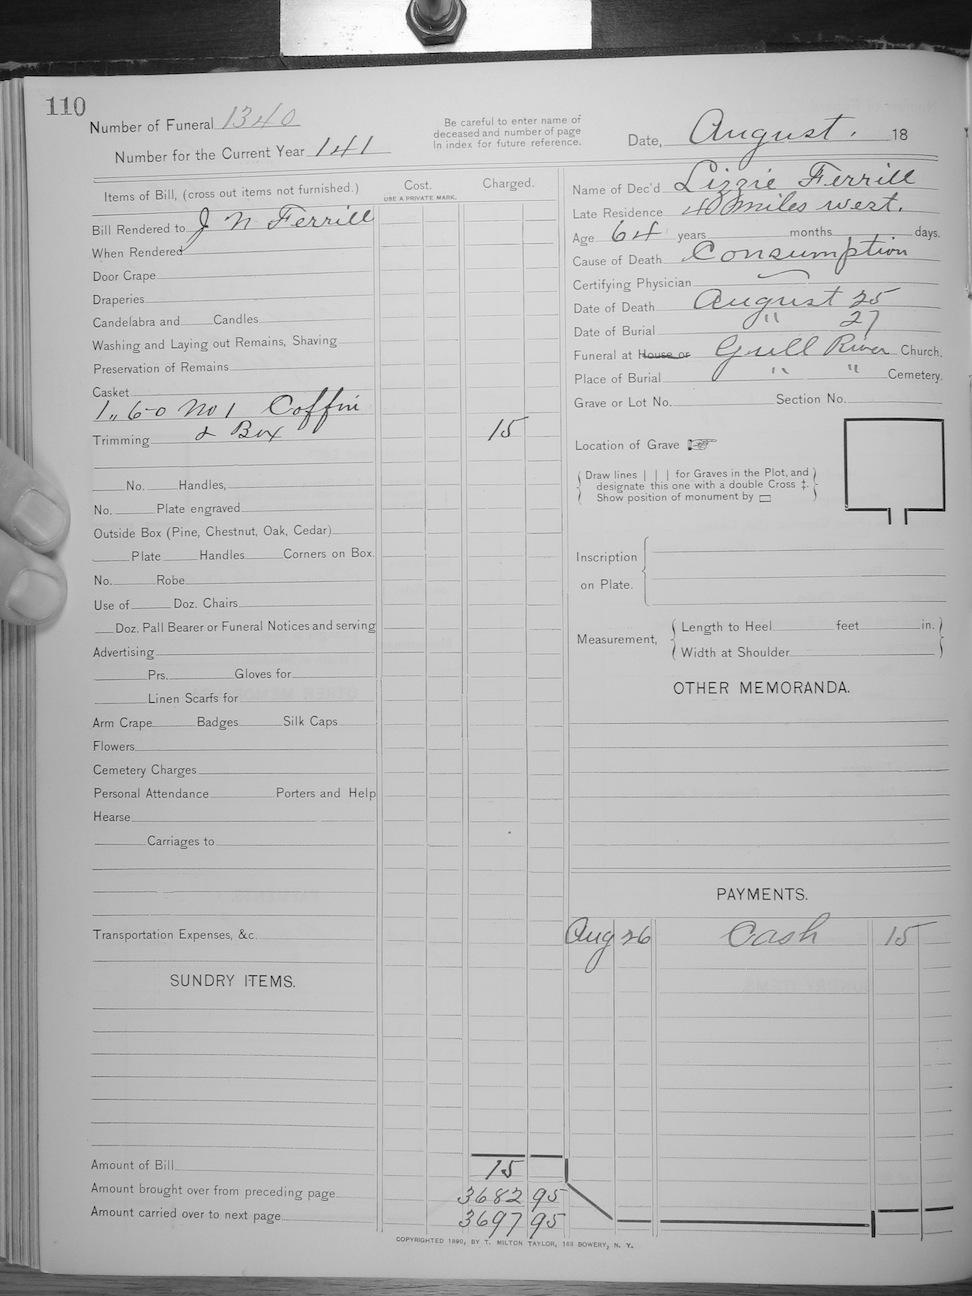 110
Number of Funeral 1340
Number for the Current Year 141
Be careful to enter name of
deceased and number of page
In index for future reference.
Date, August. 18
Items of Bill, (cross out items not furnished.)
Cost.
USE A PRIVATE MARK.
Charged.
Bill Rendered to J N Ferrill
When Rendered
Door Crape
Draperies
Candelabra and Candles
Washing and Laying out Remains, Shaving
Preservation of Remains
Casket
1 „ 6-0 No 1 Coffin
Trimming & Box 15
No. Handles,
No. Plate engraved
Outside Box (Pine, Chestnut, Oak, Cedar)
Plate Handles Corners on Box.
No. Robe
Use of Doz. Chairs
Doz. Pall Bearer or Funeral Notices and serving
Advertising
Prs. Gloves for
Linen Scarfs for
Arm Crape Badges Silk Caps
Flowers
Cemetery Charges
Personal Attendance Porters and Help
Hearse
Carriages to
Transportation Expenses, &c.
SUNDRY ITEMS.
Amount of Bill 15
Amount brought over from preceding page 3682 95
Amount carried over to next page 3697 95
Name of Dec'd Lizzie Ferrill
Late Residence miles west.
Age 64 years months days.
Cause of Death Consumption
Certifying Physician
Date of Death August 25
Date of Burial " 27
Funeral at House or Gull River Church.
Place of Burial " " Cemetery.
Grave or Lot No. Section No.
Location of Grave ☞
Draw lines | | | for Graves in the Plot, and
designate this one with a double Cross ‡.
Show position of monument by ▭
Inscription
on Plate.
Measurement,
Length to Heel feet in.
Width at Shoulder
OTHER MEMORANDA.
PAYMENTS.
Aug 26 Cash 15
COPYRIGHTED 1890, BY T. MILTON TAYLOR, 168 BOWERY, N. Y.